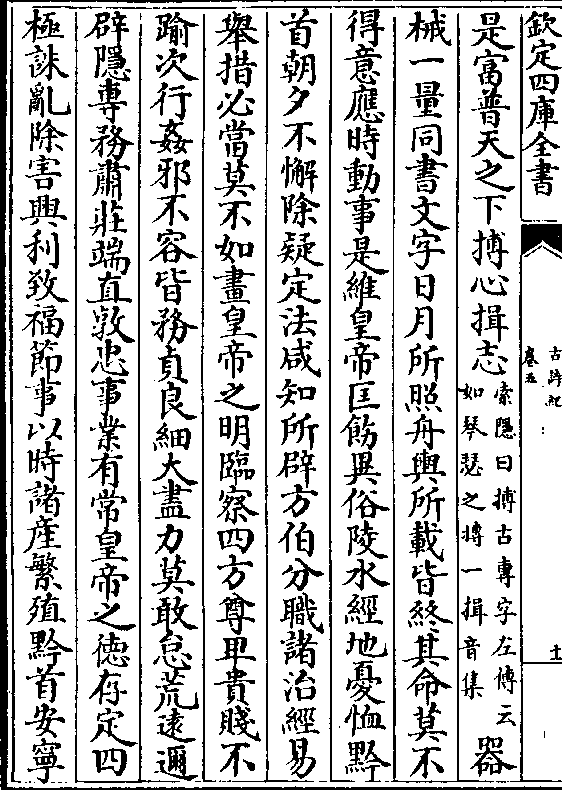 欽定四庫全書
古詩紀
卷五
十
是富普天之下摶心揖志
索隱曰摶古專字左傳云
如琴瑟之摶一揖音集
器
械一量同書文字日月所照舟輿所載皆終其命莫不
得意應時動事是維皇帝匡飭異俗陵水經地憂恤黔
首朝夕不懈除疑定法咸知所辟方伯分職諸治經易
舉措必當莫不如畫皇帝之明臨察四方尊卑貴賤不
踰次行姦邪不容皆務貞良細大盡力莫敢怠荒遠邇
辟隱專務肅莊端直敦忠事業有常皇帝之徳存定四
極誅亂除害興利致福節事以時諸產繁殖黔首安寧